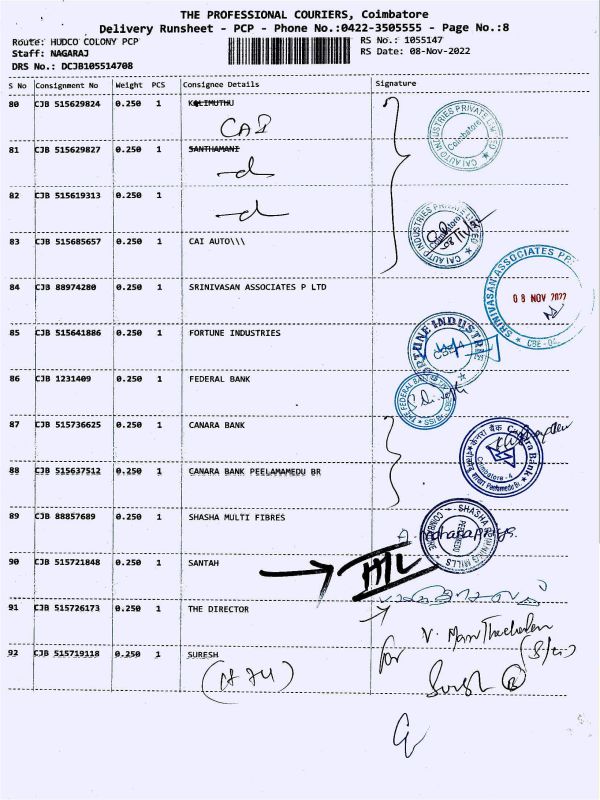 THE PROFESSIONAL COURIERS, Coimbatore
Delivery Runsheet - PCP - Phone No.:0422-3505555 - Page No.:8
Route: HUDCO COLONY PCP
Staff: NAGARAJ
DRS No.: DCJB105514708
RS No.: 1055147
RS Date: 08-Nov-2022
S No Consignment No Weight PCS Consignee Details Signature
80 CJB 515629824 0.250 1 KALIMUTHU
CAI
CAI AUTO INDUSTRIES PRIVATE LIMITED
Coimbatore
81 CJB 515629827 0.250 1 SANTHAMANI
82 CJB 515619313 0.250 1
83 CJB 515685657 0.250 1 CAI AUTO\\\
CAI AUTO INDUSTRIES PRIVATE LIMITED
84 CJB 88974280 0.250 1 SRINIVASAN ASSOCIATES P LTD
SRINIVASAN ASSOCIATES
08 NOV 2022
CBE
85 CJB 515641886 0.250 1 FORTUNE INDUSTRIES
FORTUNE INDUSTRIES
86 CJB 1231409 0.250 1 FEDERAL BANK
THE FEDERAL BANK
87 CJB 515736625 0.250 1 CANARA BANK
केनरा बैंक Canara Bank
Coimbatore - 4
88 CJB 515637512 0.250 1 CANARA BANK PEELAMAMEDU BR
89 CJB 88857689 0.250 1 SHASHA MULTI FIBRES
SHASHA
MILLS
90 CJB 515721848 0.250 1 SANTAH
91 CJB 515726173 0.250 1 THE DIRECTOR
for
92 CJB 515719118 0.250 1 SURESH
Suresh